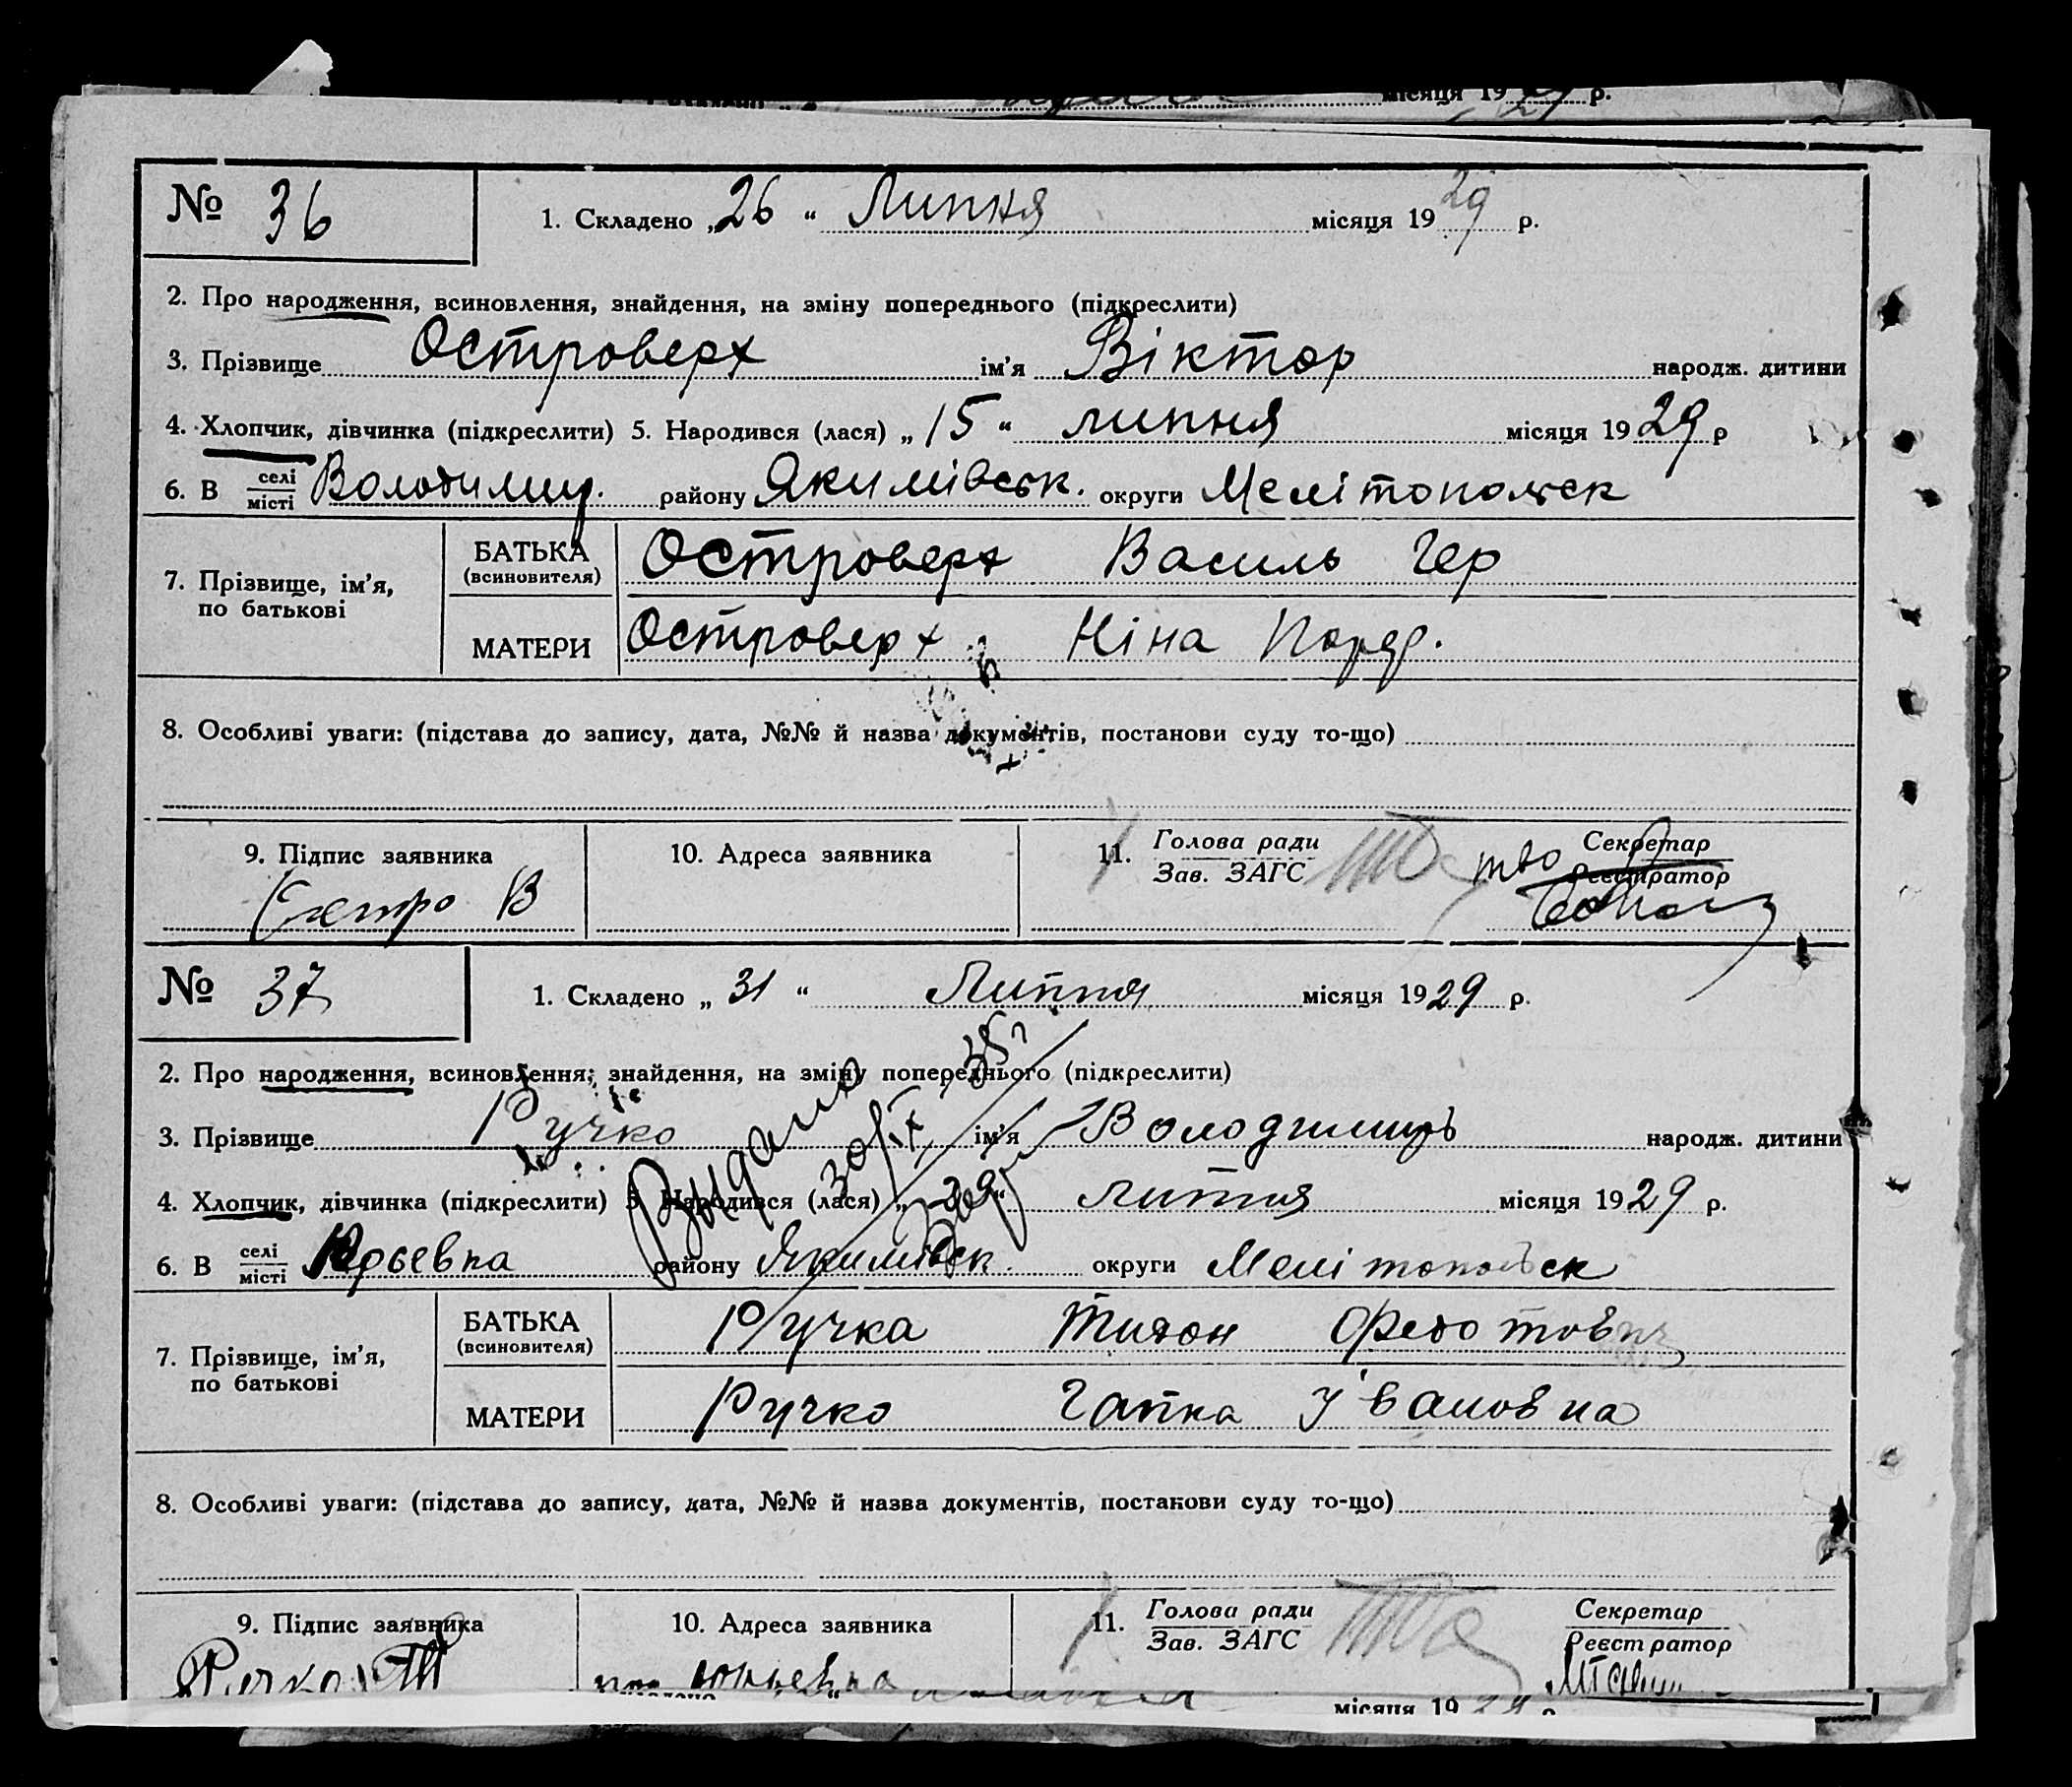 місяця 19 29 р.
№ 36
1. Складено „26“ Липня місяця 1929 р.
2. Про народження, всиновлення, знайдення, на зміну попереднього (підкреслити)
3. Прізвище Островерх ім’я Віктор народж. дитини
4. Хлопчик, дівчинка (підкреслити) 5. Народився (лася) „15“ липня місяця 1929 р
6. В селі/місті Володимир. району Якимівськ. округи Мелітопольск
7. Прізвище, ім’я, по батькові
БАТЬКА (всиновителя) Островерх Василь Гер
МАТЕРИ Островерх Ніна
8. Особливі уваги: (підстава до запису, дата, №№ й назва документів, постанови суду то-що)
9. Підпис заявника
10. Адреса заявника
11. Голова ради
Зав. ЗАГС
Секретар
Реєстратор
тво
№ 37
1. Складено „31“ Липня місяця 1929 р.
2. Про народження, всиновлення, знайдення, на зміну попереднього (підкреслити)
3. Прізвище Ручко ім’я Володимир народж. дитини
4. Хлопчик, дівчинка (підкреслити) 5. Народився (лася) „29“ липня місяця 1929 р.
Выдано
30/IX 35г
6. В селі/місті Юрьевка району Якимівск. округи Мелітопольск
7. Прізвище, ім’я, по батькові
БАТЬКА (всиновителя) Ручка Тихон Федотович
МАТЕРИ Ручко Гапка Івановна
8. Особливі уваги: (підстава до запису, дата, №№ й назва документів, постанови суду то-що)
9. Підпис заявника
Ручко Т
10. Адреса заявника
Юрьевка
11. Голова ради
Зав. ЗАГС
Секретар
Реєстратор
місяця 19